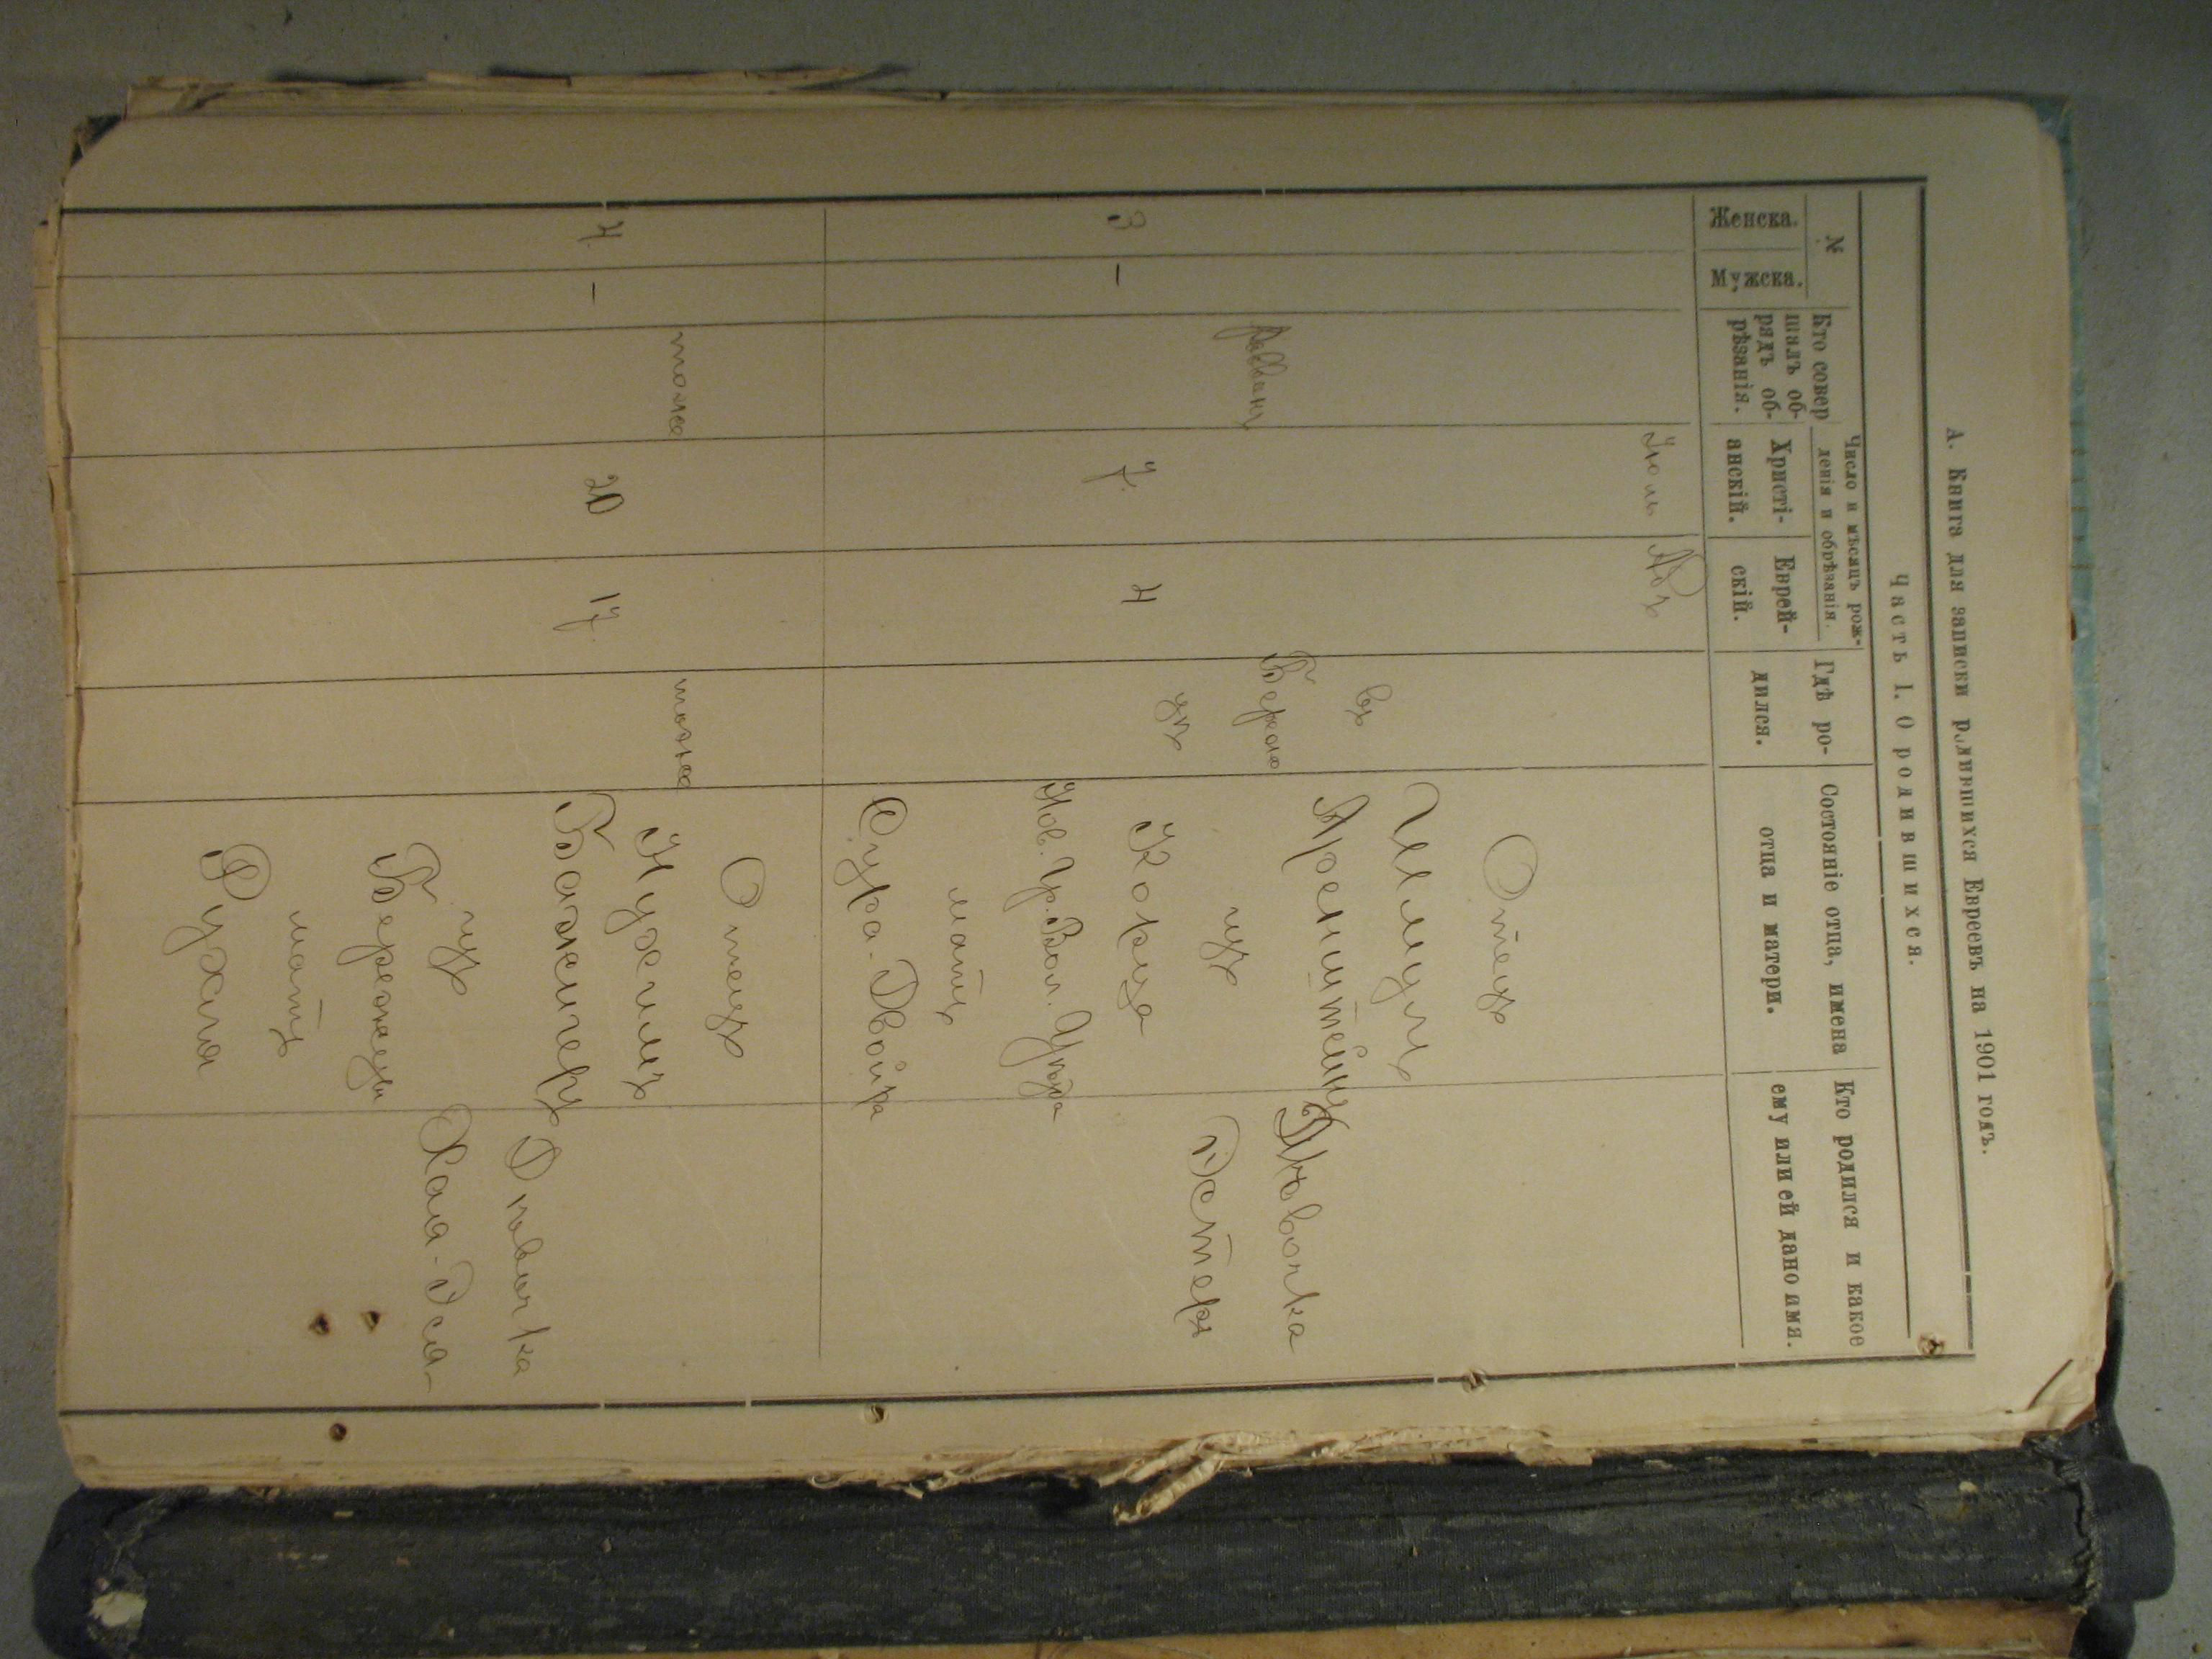 А. Книга для записки родившихся Евреевъ на 1901 годъ.
Часть I. О родившихся.
№
Женска.
Мужска.
Кто совер
шалъ об-
рядъ об-
рѣзанія.
Число и мѣсяцъ рож-
денія и обрѣзанія.
Христі-
анскій.
Еврей-
скій.
Гдѣ ро-
дился.
Состояніе отца, имена
отца и матери.
Кто родился и какое
ему или ей дано имя.
Іюль
Авъ
3
–
Раввинъ
7.
4
въ
Березно
Отецъ
Шмулъ
Аренштейнъ
изъ
Корца
Нов. Гр. Вол. Уѣзда
мать
Сура-Двойра
Дѣвочка
Эстеръ
4.
–
тоже
20
17.
тоже
Отецъ
Нухимъ
Важнеръ
изъ
мать
Рухля
Дѣвочка
Хая-Эся